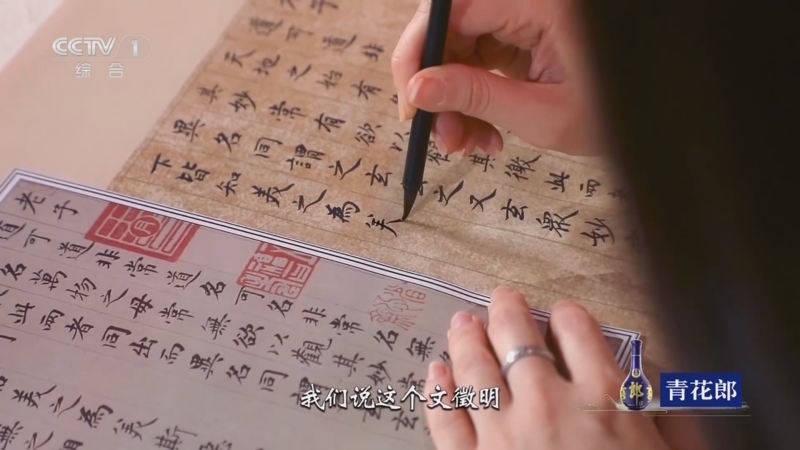 CCTV 1
综合
子
道可道非
天地之始有
其妙常有欲以其徼此
異名同謂之玄之又玄衆妙
下皆知美之為美
老子
道可道非常道名可名非常名無
名萬物之母常無欲以觀其妙
此兩者同出而異名同
美之為美斯
我们说这个文徵明
郎
青花郎